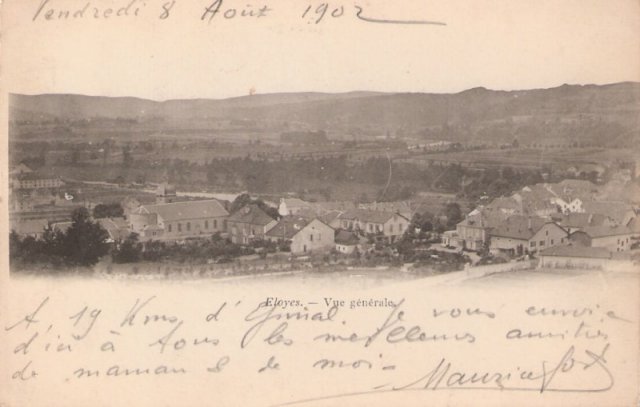 Vendredi 8 Août 1902
Eloyes. — Vue générale.
A 19 Kms d'Epinal Je vous envoie
d'ici à tous les meilleurs amitiés
de maman & de moi -
Maurice